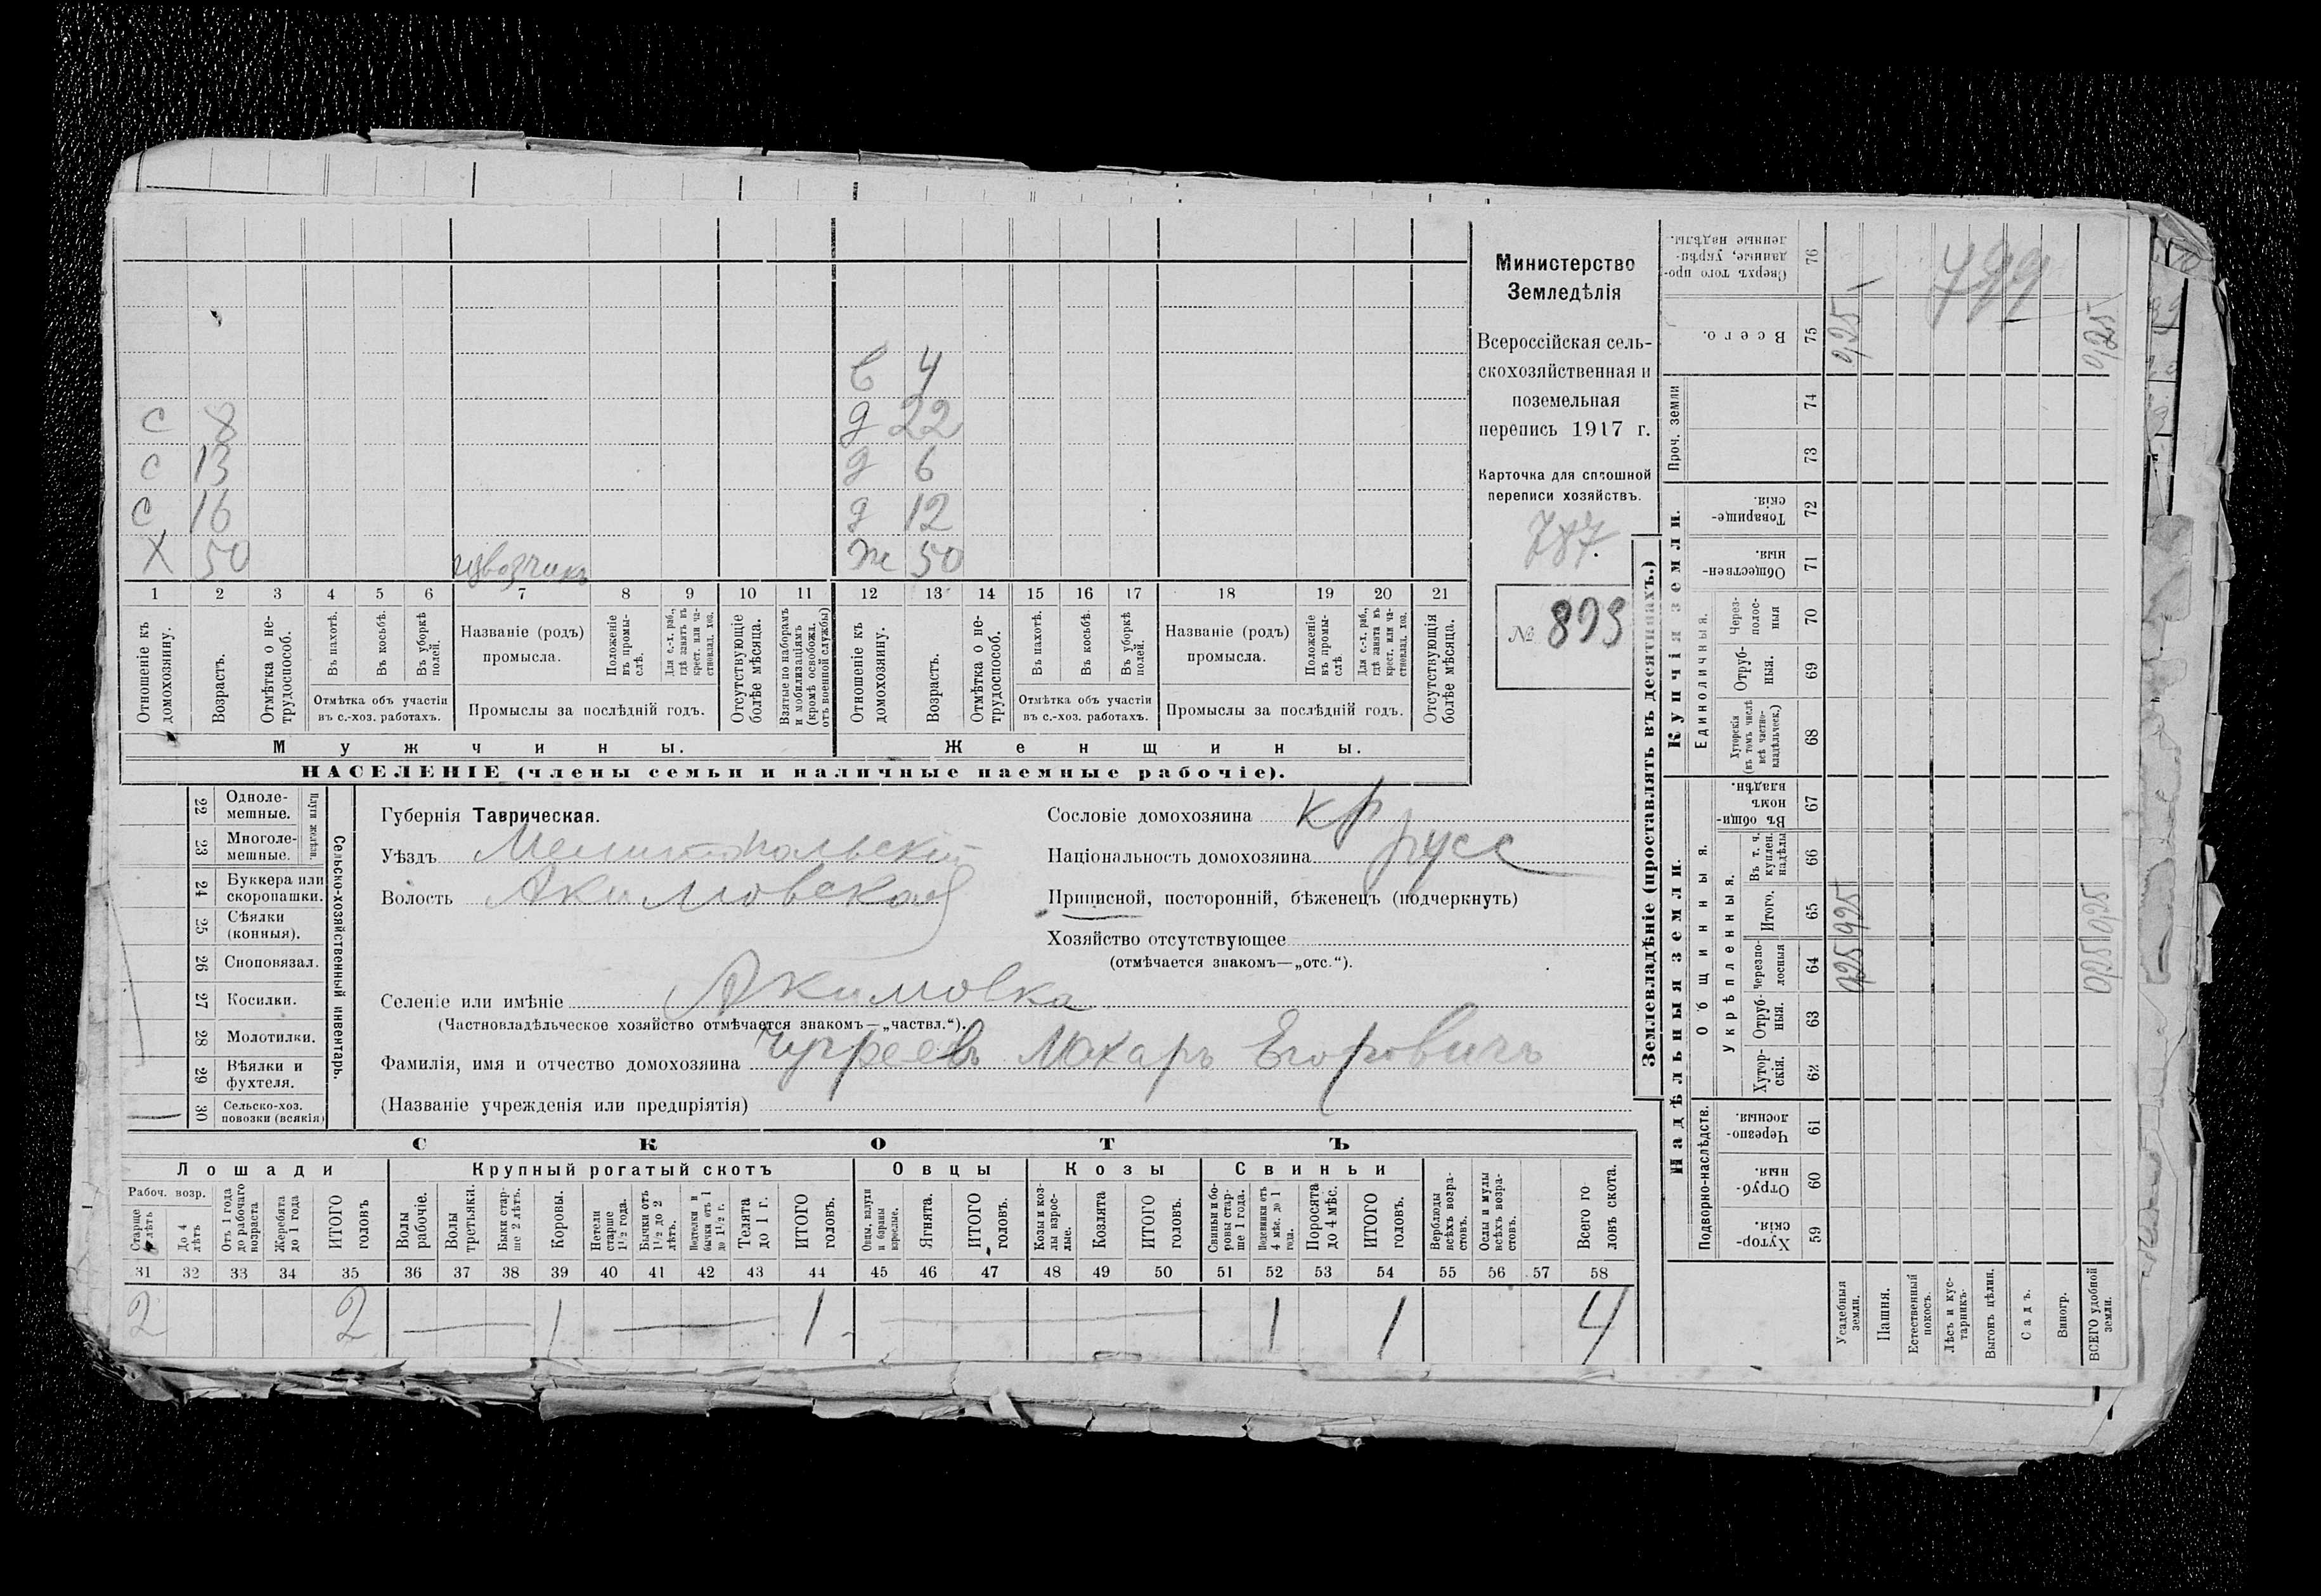 Министерство
Земледѣлія
Всероссійская сель-
скохозяйственная и
поземельная
перепись 1917 г.
Карточка для сплошной
переписи хозяйствъ.
787
№ 893
в 4
с 8 д 22
с 13 д 6
с 16 д 12
Х 50 извозчикъ ж 50
1 2 3 4 5 6 7 8 9 10 11 12 13 14 15 16 17 18 19 20 21
Отношеніе къ домохозяину.
Возрастъ.
Отмѣтка о не-трудоспособ.
Въ пахотѣ.
Въ косьбѣ.
Въ уборкѣ полей.
Отмѣтка объ участіи
въ с.-хоз. работахъ.
Названіе (родъ)
промысла.
Положеніе въ промы-слѣ.
Для с.-х. раб., гдѣ занятъ въ крест. или ча-стновлад. хоз.
Промыслы за послѣдній годъ.
Отсутствующіе болѣе мѣсяца.
Взятые по наборамъ и мобилизаціямъ (кромѣ освобожд. отъ военной службы)
Отношеніе къ домохозяину.
Возрастъ.
Отмѣтка о не-трудоспособ.
Въ пахотѣ.
Въ косьбѣ.
Въ уборкѣ полей.
Отмѣтка объ участіи
въ с.-хоз. работахъ.
Названіе (родъ)
промысла.
Положеніе въ промы-слѣ
Для с.-х. раб., гдѣ занята въ крест. или ча-стновлад. хоз.
Промыслы за послѣдній годъ.
Отсутствующія болѣе мѣсяца.
Мужчины.
Женщины.
НАСЕЛЕНІЕ (члены семьи и наличные наемные рабочіе).
Сельско-хозяйственный инвентарь.
Плуги желѣзн.
22 Одноле-мешные.
23 Многоле-мешные.
24 Буккера или скоропашки.
25 Сѣялки (конныя).
26 Сноповязал.
27 Косилки.
28 Молотилки.
29 Вѣялки и фухтеля.
30 Сельско-хоз. повозки (всякія)
Губернія Таврическая.
Уѣздъ Мелитопольскій
Волость Акимовская
Сословіе домохозяина кр
Національность домохозяина русс
Приписной, посторонній, бѣженецъ (подчеркнуть)
Хозяйство отсутствующее
(отмѣчается знакомъ—„отс.“).
Селеніе или имѣніе Акимовка
(Частновладѣльческое хозяйство отмѣчается знакомъ—„частвл.“).
Фамилія, имя и отчество домохозяина Чугреевъ Макаръ Егоровичъ
(Названіе учрежденія или предпріятія)
СКОТЪ
Лошади Крупный рогатый скотъ Овцы Козы Свиньи
Рабоч. возр.
Старше 4 лѣтъ
До 4 лѣтъ
Отъ 1 года до рабочаго возраста
Жеребята до 1 года
ИТОГО головъ
Волы рабочіе.
Волы третьяки.
Быки стар-ше 2 лѣтъ.
Коровы.
Нетели старше 1½ года.
Бычки отъ 1½ до 2 лѣтъ.
Подтелки и бычки отъ 1 до 1½ г.
Телята до 1 г.
ИТОГО головъ.
Овцы, валухи и бараны взрослые.
Ягнята.
ИТОГО головъ.
Козы и коз-лы взрос-лые.
Козлята
ИТОГО головъ.
Свиньи и бо-ровы стар-ше 1 года.
Подсвинки отъ 4 мѣс. до 1 года.
Поросята до 4 мѣс.
ИТОГО головъ.
Верблюды всѣхъ возра-стовъ.
Ослы и мулы всѣхъ возра-стовъ.
Всего го-ловъ скота.
31 32 33 34 35 36 37 38 39 40 41 42 43 44 45 46 47 48 49 50 51 52 53 54 55 56 57 58
2 2 — 1 — 1 — 1 1 4
Землевладѣніе (проставлять въ десятинахъ.)
Надѣльныя земли.
Купчія земли.
Проч. земли
Подворно-наслѣдств.
Общинныя.
Укрѣпленныя.
Единоличныя.
Хутор-скія. 59
Отруб-ныя. 60
Черезпо-лосныя. 61
Хутор-скія. 62
Отруб-ныя. 63
Черезпо-лосныя 64
Итого. 65
Въ т. ч. куплен. надѣлы 66
Въ общин-номъ владѣн. 67
Хуторскія (въ томъ числѣ всѣ частно-владѣльческ.) 68
Отруб-ныя. 69
Через-полос-ныя 70
Обществен-ныя. 71
Товарище-скія. 72
73
74
Всего. 75
Сверхъ того про-данные, укрѣп-ленные надѣлы. 76
Усадебныя земли. 0,25 0,25 0,25
Пашня.
Естественный покосъ.
Лѣсъ и кус-тарникъ.
Выгонъ цѣлин.
Садъ.
Виногр.
ВСЕГО удобной земли. 0,25 0,25 0,25
799